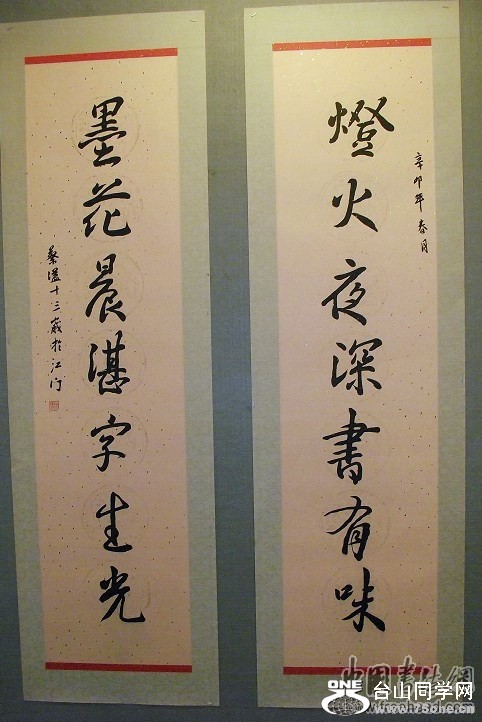 燈火夜深書有味
辛卯年春月
墨花晨湛字生光
十三歲於江門
中国书法网
ONE
台山同学网
www.75one.cn